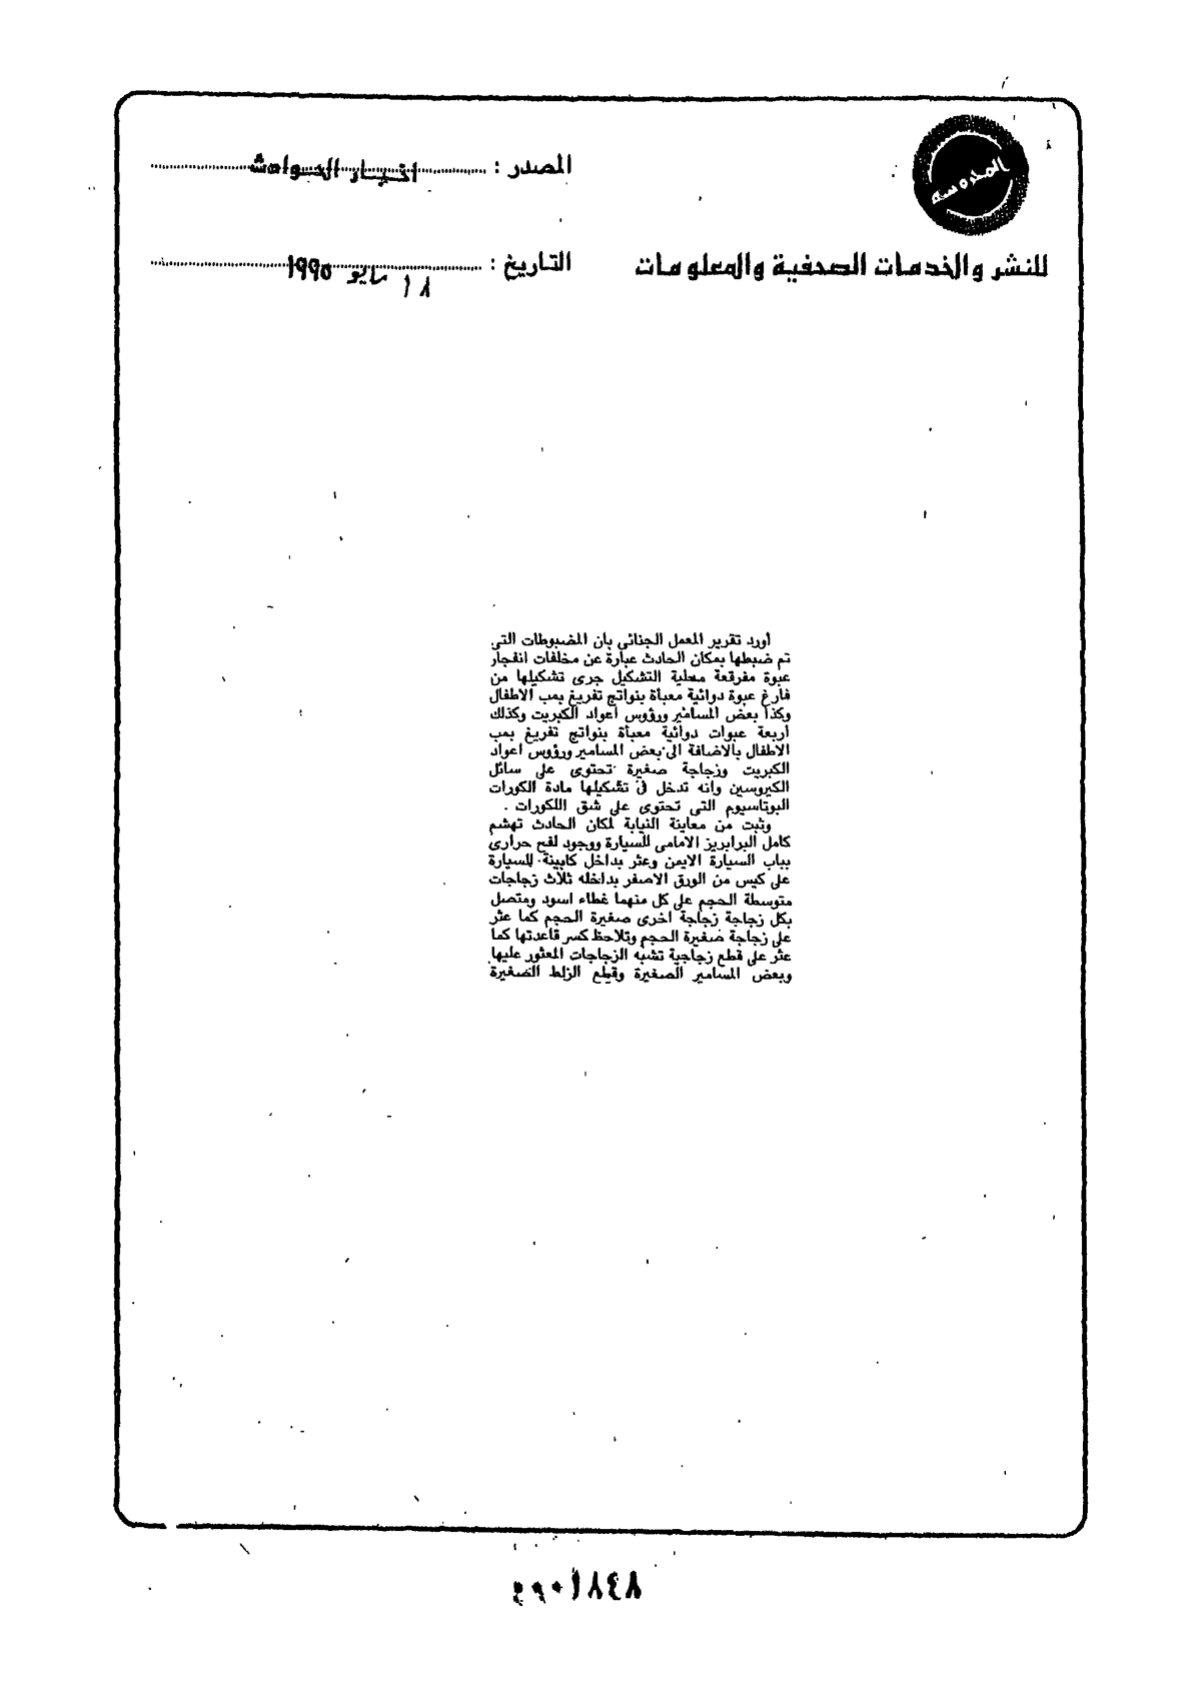 المحروسة
المصدر : أخبار الحوادث
للنشر والخدمات الصحفية والمعلومات
التاريخ : ١٨ مايو ١٩٩٥
أورد تقرير المعمل الجنائى بان المضبوطات التى
تم ضبطها بمكان الحادث عبارة عن مخلفات انفجار
عبوة مفرقعة محلية التشكيل جرى تشكيلها من
فارغ عبوة دوائية معبأة بنواتج تفريغ بمب الاطفال
وكذا بعض المسامير ورؤوس أعواد الكبريت وكذلك
اربعة عبوات دوائية معبأة بنواتج تفريغ بمب
الاطفال بالاضافة الى بعض المسامير ورؤوس اعواد
الكبريت وزجاجة صغيرة تحتوى على سائل
الكيروسين وانه تدخل فى تشكيلها مادة الكورات
البوتاسيوم التى تحتوى على شق اللكورات .
وثبت من معاينة النيابة لمكان الحادث تهشم
كامل البرابريز الامامى للسيارة ووجود لفح حرارى
بباب السيارة الايمن وعثر بداخل كابينة السيارة
على كيس من الورق الاصفر بداخله ثلاث زجاجات
متوسطة الحجم على كل منهما غطاء اسود ومتصل
بكل زجاجة زجاجة اخرى صغيرة الحجم كما عثر
على زجاجة صغيرة الحجم وتلاحظ كسر قاعدتها كما
عثر على قطع زجاجية تشبه الزجاجات المعثور عليها
وبعض المسامير الصغيرة وقطع الزلط الصغيرة